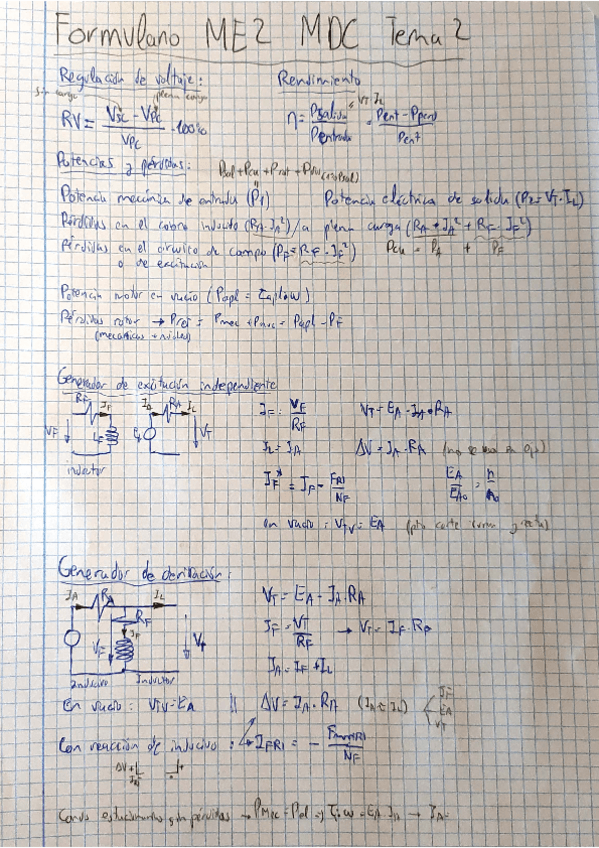 Formulario ME2 MDC Tema 2
Regulación de voltaje: Rendimiento
sin carga plena carga
RV = (Vsc - Vpc) / Vpc · 100% η = Psalida / Pentrada = (Pent - Pperd) / Pent
Potencias y pérdidas:
Potencia mecánica de entrada (P1) Potencia eléctrica de salida (P2 = VT · IL)
Pérdidas en el cobre inducido (RA · IA²) / a plena carga (RA + IA² + RF · IF²)
Pérdidas en el circuito de campo (PF = RF · IF²) Pcu = PA + PF
o de excitación
Potencia motor en vacío (Papl = τapl · ω)
Pérdidas rotor → Prot = Pmec + Pnuc = Papl - PF
(mecánicas + núcleo)
Generador de excitación independiente
RF IF IA RA IL
VF LF VT
inductor
IF = VF / RF VT = EA - IA · RA
IL = IA ΔV = IA · RA
IF* = IF - FRI / NF EA / EA0 = n / n0
en vacío: VTV = EA
Generador de derivación:
IA RA IL
RF
IF
VF VT
Inducido Inductor
VT = EA - IA · RA
IF = VT / RF → VT = IF · RF
IA = IF + IL
En vacío: VTV = EA || ΔV = IA · RA (IA = IL) IF EA VT
Con reacción de inducido: IFRI = - / NF
sin pérdidas → Pmec = Pel ⇒ τ · ω = EA · IA → IA =